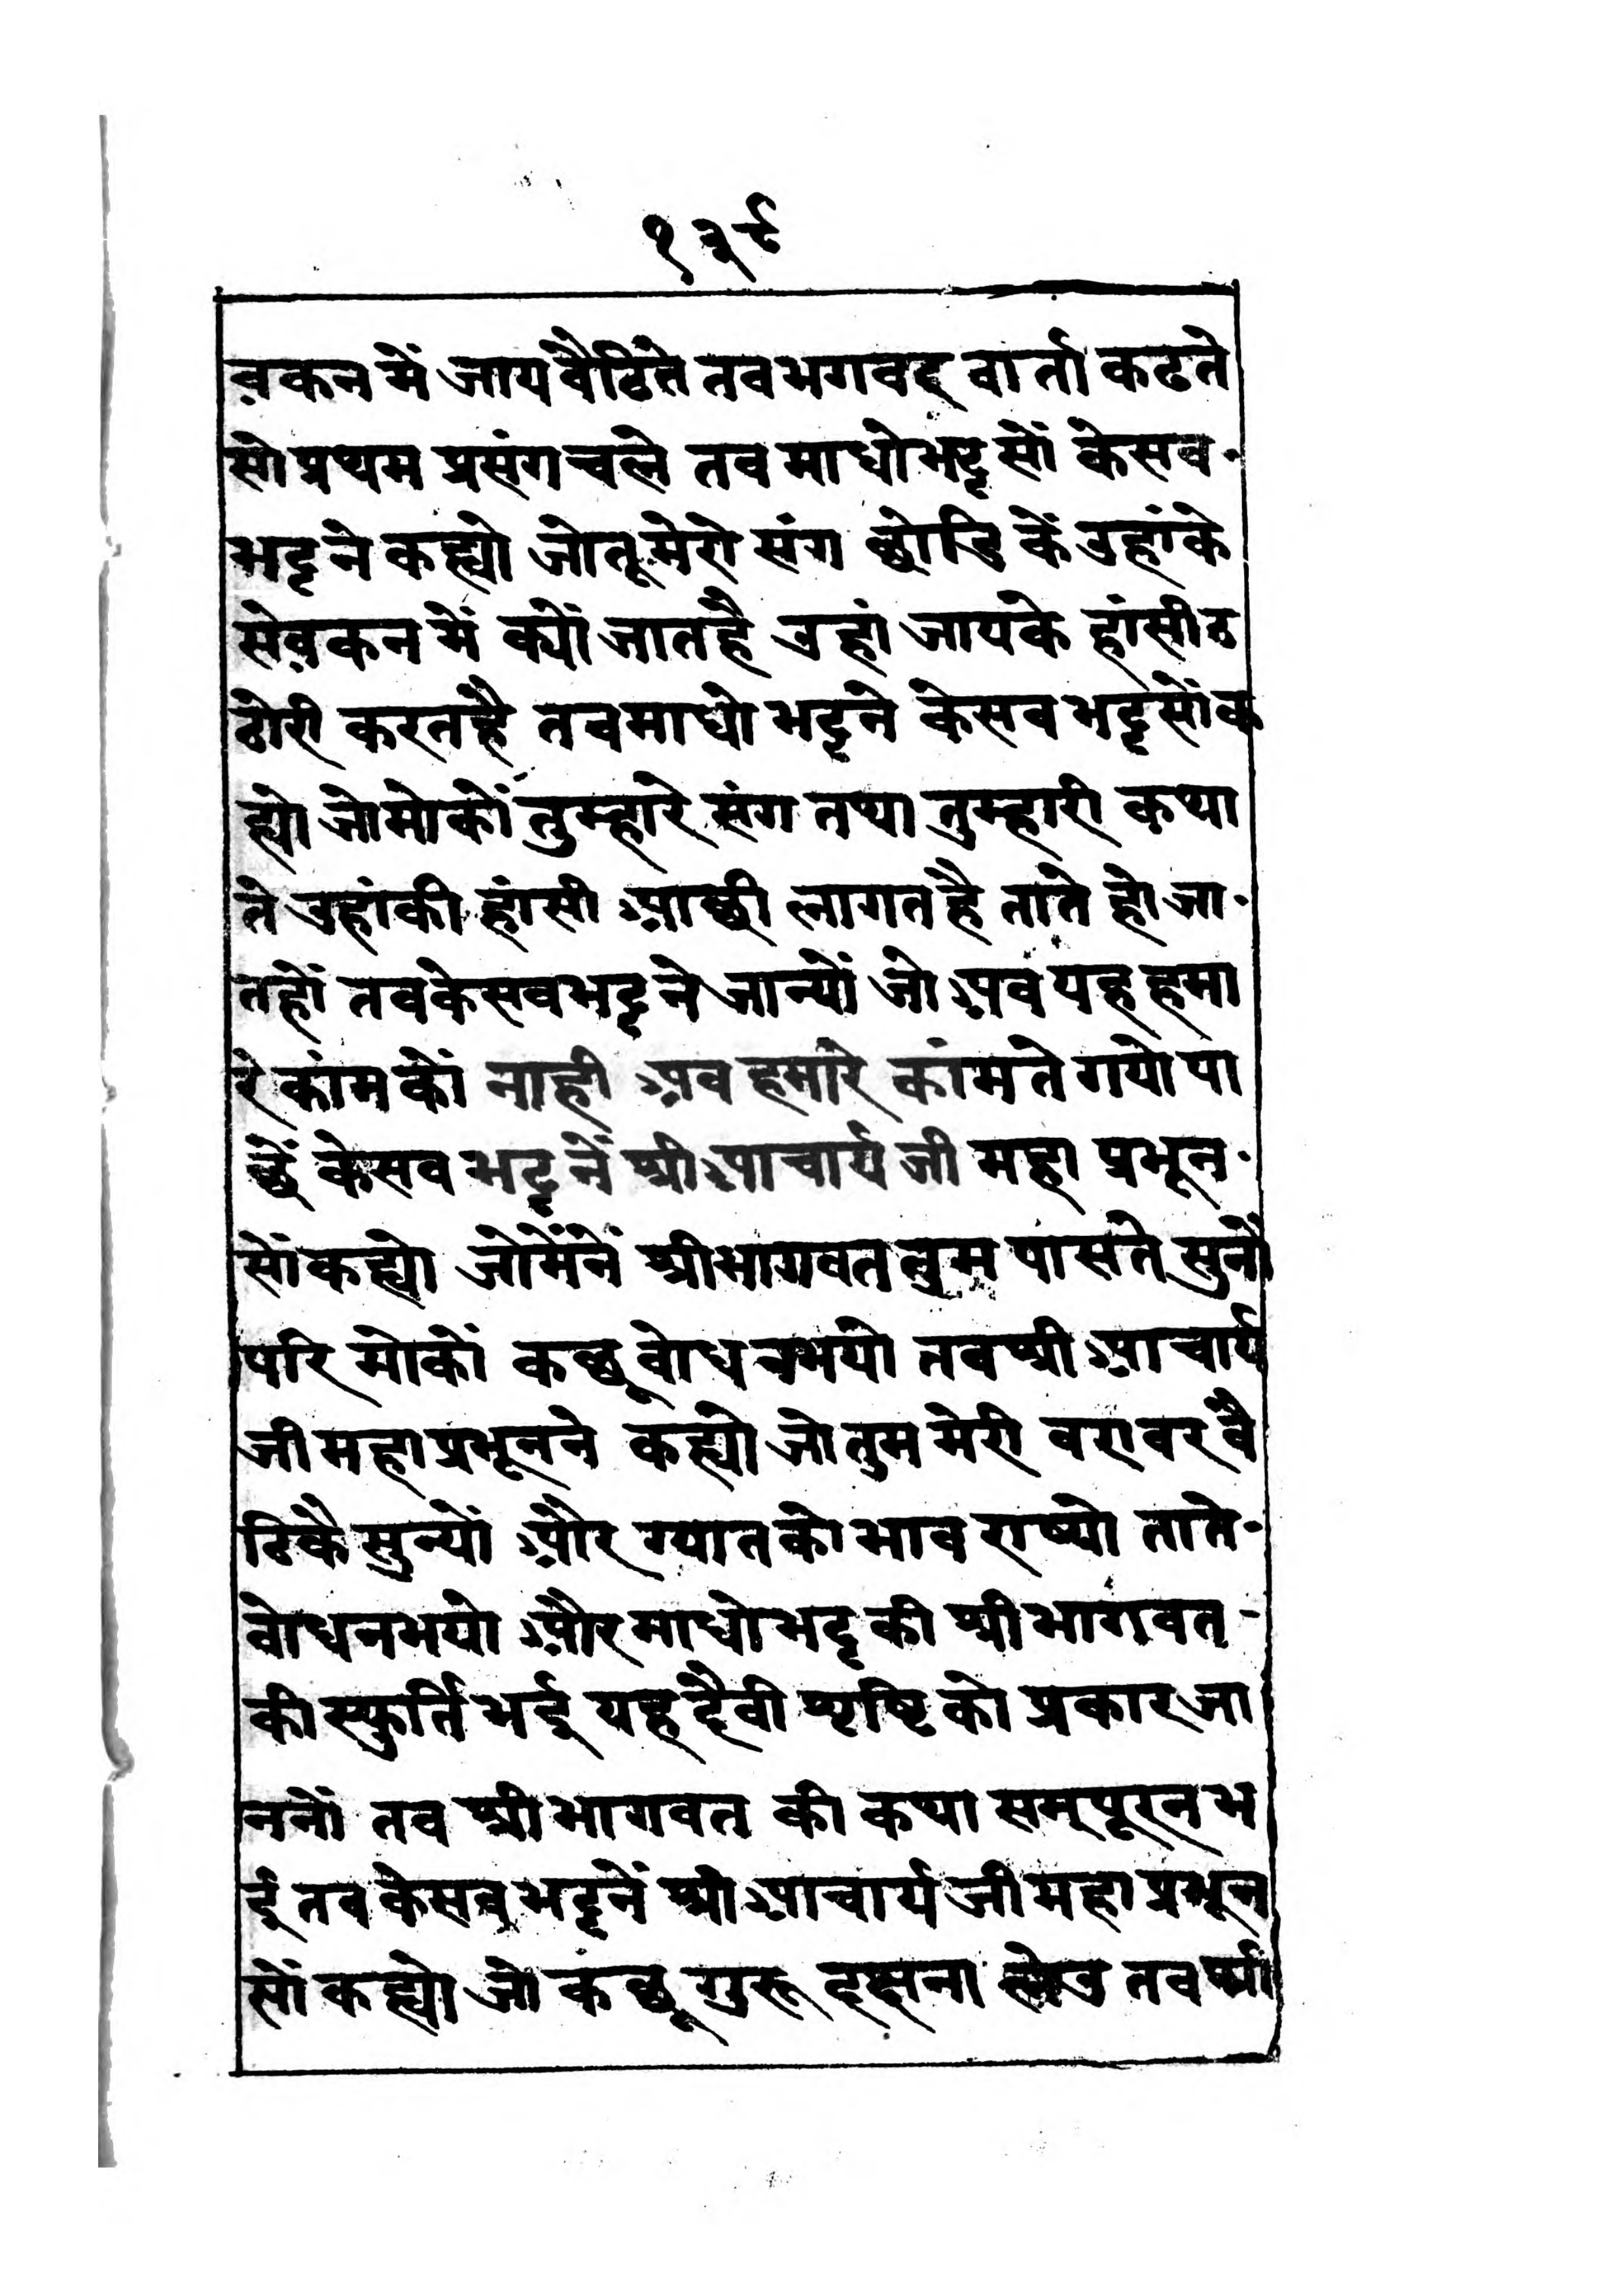 १३८
व़कन में जाय वैठिते तव भगवद् वार्ता कढते
सो प्रथम प्रसंग चले तव माधो भट्ट सों केसव
भट्ट ने कह्यो जो तू मेरो संग छोडि कें उहां के
सेव़कन में क्यों जात है उहां जायके हांसी ठ
ठोरी करत है तव माधो भट्ट ने केसव भट्ट सों क
ह्यो जो मोकों तुम्हारे संग तथा तुम्हारी कथा
ते उहांकी हांसी आछी लागत है ताते हो जा
तहों तव केसव भट्ट ने जान्यों जो अव यह हमा
रे कांम कों नाही अव हमारे कांम ते गयो पा
छें केसव भट्ट नें श्री आचार्य जी महा प्रभून
सों कह्यो जो मैंनें श्री भागवत तुम पास ते सुनौ
परि मोकों कछू वोध न भयो तव श्री आचार्य
जी महा प्रभून ने कह्यो जो तुम मेरी वरावर वै
ठिकै सुन्यों और ग्यात को भाव राष्यो ताते
वोध न भयो और माधो भट्ट की श्री भागवत
की स्फुर्ति भई यह दैवी श्रृष्टि को प्रकार जा
ननों तव श्री भागवत की कथा सम्पूरन भ
ई तव केसव़ भट्ट नें श्री आचार्य जी महा प्रभून
सों कह्यो जो कछू गुरू दक्षना लेउ तव श्री